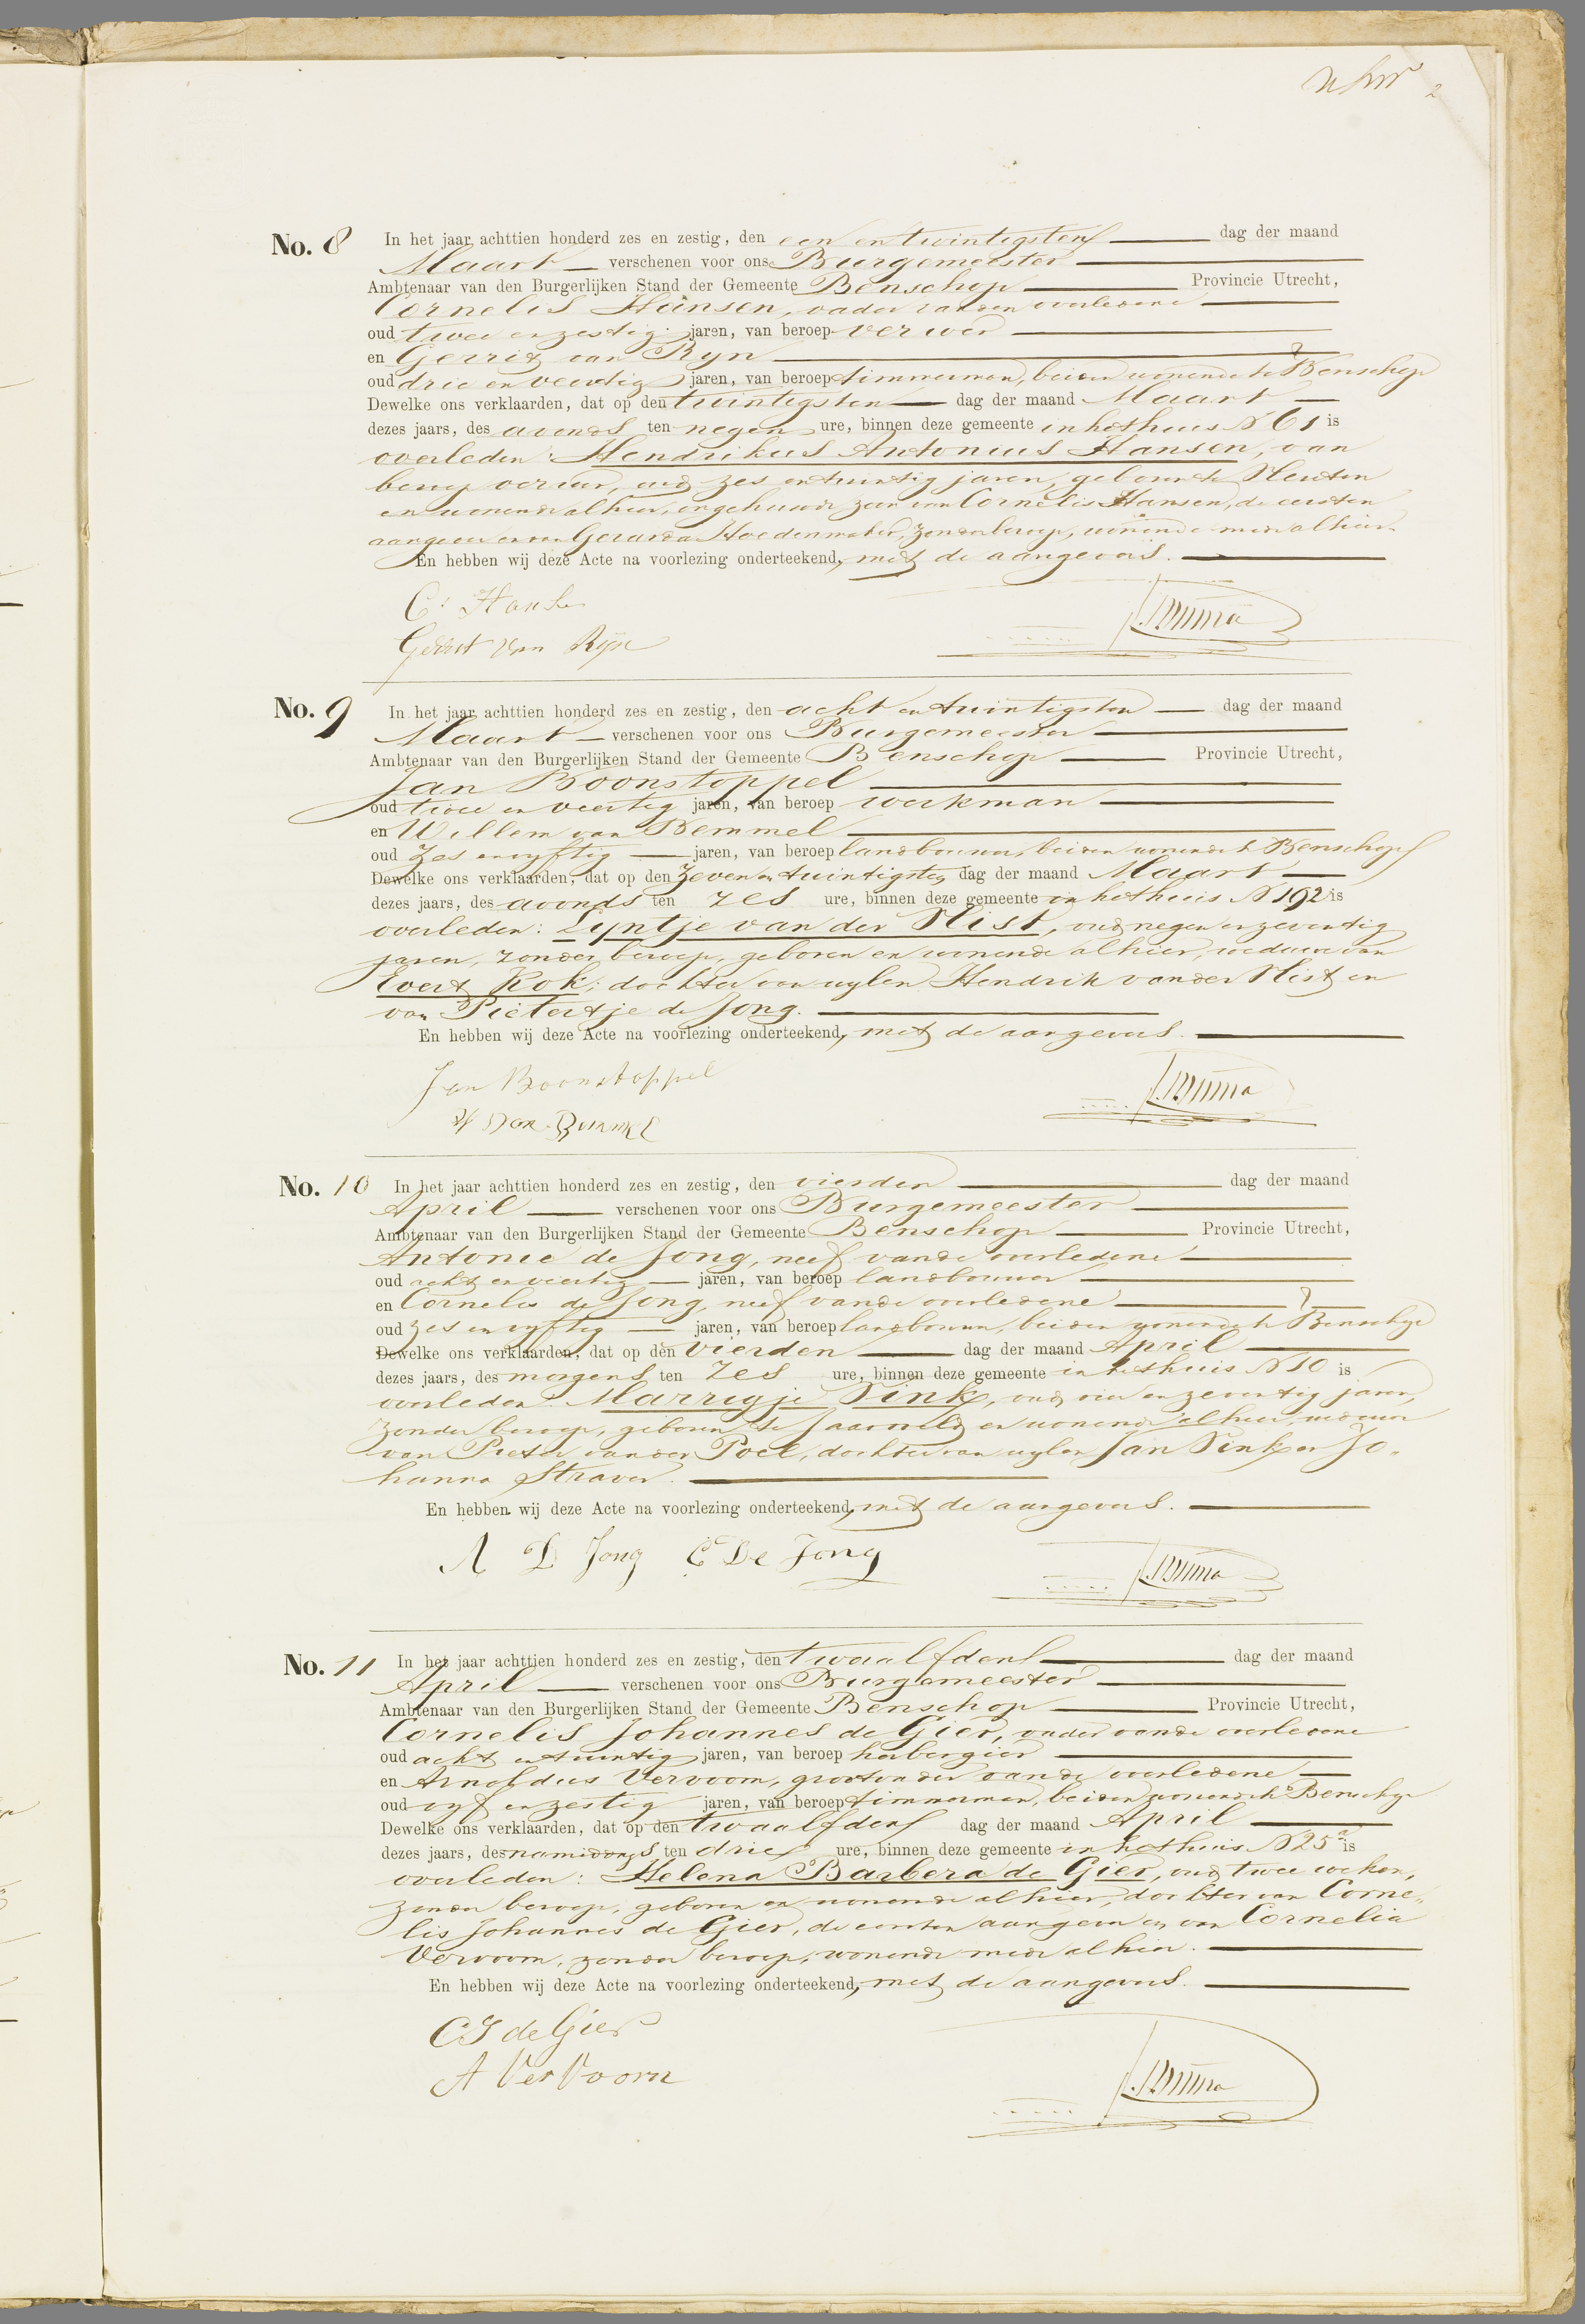 2
No. 8 In het jaar achttien honderd zes en zestig, den een en twintigsten dag der maand
Maart verschenen voor ons Burgemeester
Ambtenaar van den Burgerlijken Stand der Gemeente Benschop Provincie Utrecht,
Cornelis Hansen, vader van den overledene
oud twee en zestig jaren, van beroep verwer
en Gerrit van Ryn
oud drie en veertig jaren, van beroep timmerman, beiden wonende te Benschop
Dewelke ons verklaarden, dat op den twintigsten dag der maand Maart
dezes jaars, des avonds ten negen ure, binnen deze gemeente in het huis N 61 is
overleden: Hendrikus Antonius Hansen, van
beroep verwer, oud zes en twintig jaren, geboren te
en wonende alhier, ongehuwde zoon van Cornelis Hansen, de eersten
aangever en van Gerarda Hoedenmaker, zonder beroep, wonende mede alhier.
En hebben wij deze Acte na voorlezing onderteekend, met de aangevers.
C. Hanse
Gerrit Van Rijn
No. 9 In het jaar achttien honderd zes en zestig, den acht en twintigsten dag der maand
Maart verschenen voor ons Burgemeester
Ambtenaar van den Burgerlijken Stand der Gemeente Benschop Provincie Utrecht,
Jan Boonstoppel
oud twee en veertig jaren, van beroep werkman
en Willem van Bemmel
oud zes en vyftig jaren, van beroep landbouwer, beiden wonende te Benschop
Dewelke ons verklaarden, dat op den zeven en twintigsten dag der maand Maart
dezes jaars, des avonds ten zes ure, binnen deze gemeente in het huis N 192 is
overleden: Lyntje van der Hist, oud negen en zeventig
jaren, zonder beroep, geboren en wonende alhier, weduwe van
Evert Kok; dochter van wylen Hendrik van der Hist en
van Pietertje de Jong.
En hebben wij deze Acte na voorlezing onderteekend, met de aangevers.
Jan Boonstoppel
W Van Bemmel
No. 10 In het jaar achttien honderd zes en zestig, den vierden dag der maand
April verschenen voor ons Burgemeester
Ambtenaar van den Burgerlijken Stand der Gemeente Benschop Provincie Utrecht,
Antonie de Jong, neef van de overledene
oud acht en veertig jaren, van beroep landbouwer
en Cornelis de Jong, neef van de overledene
oud zes en vyftig jaren, van beroep landbouwer, beiden wonende te Benschop
Dewelke ons verklaarden, dat op den vierden dag der maand April
dezes jaars, des morgens ten zes ure, binnen deze gemeente in het huis N 10 is
overleden: Marrigje Pink, oud vier en zeventig jaren,
zonder beroep, geboren te Jaarsveld en wonende alhier, weduwe
van Pieter van der Poel, dochter van wylen Jan Pink en Jo-
hanna Straver.
En hebben wij deze Acte na voorlezing onderteekend, met de aangevers.
A D Jong C De Jong
No. 11 In het jaar achttien honderd zes en zestig, den twaalfden dag der maand
April verschenen voor ons Burgemeester
Ambtenaar van den Burgerlijken Stand der Gemeente Benschop Provincie Utrecht,
Cornelis Johannes de Gier, vader van de overledene
oud acht en twintig jaren, van beroep herbergier
en Arnoldus Vervoorn, grootvader van de overledene
oud vyf en zestig jaren, van beroep timmerman, beiden wonende te Benschop
Dewelke ons verklaarden, dat op den twaalfden dag der maand April
dezes jaars, des namiddags ten drie ure, binnen deze gemeente in het huis N 25a is
overleden: Helena Barbera de Gier, oud twee weken,
zonder beroep, geboren en wonende alhier, dochter van Corne-
lis Johannes de Gier, de eersten aangever en van Cornelia
Vervoorn, zonder beroep, wonende mede alhier.
En hebben wij deze Acte na voorlezing onderteekend, met de aangevers.
CJ de Gier
A VerVoorn